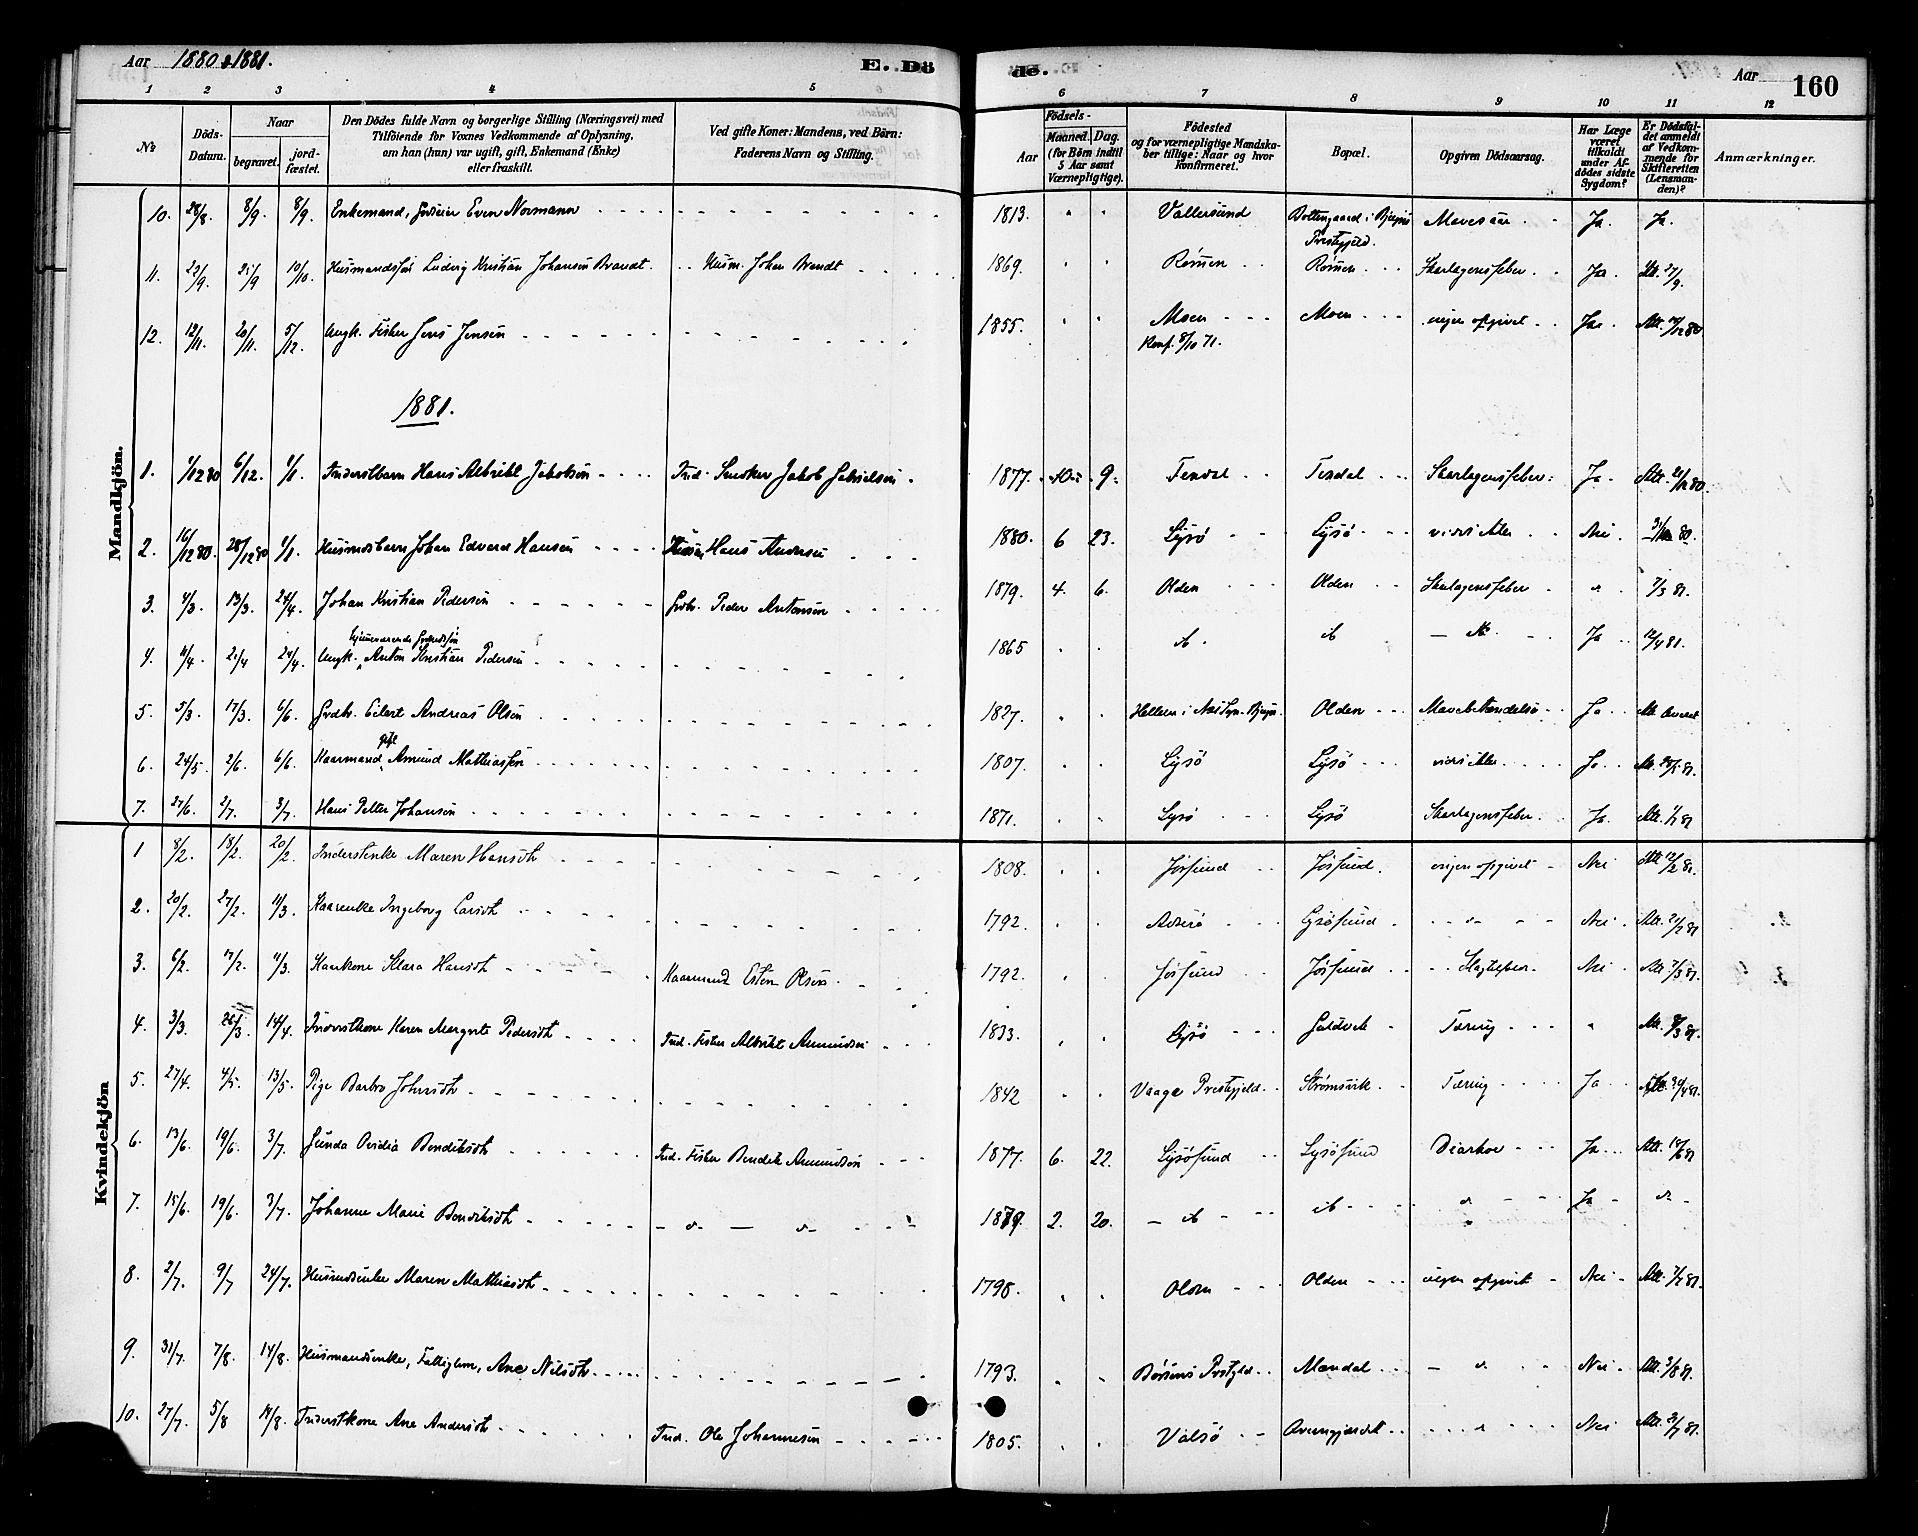 Aar 1880 & 1881.
E. Döde.
Aar
160
1 2 3 4 5 6 7 8 9 10 11 12
No
Döds-Datum.
Naar
begravet.
jord-fæstet.
Den Dödes fulde Navn og borgerlige Stilling (Næringsvei) med
Tilföiende for Voxnes Vedkommende af Oplysning,
om han (hun) var ugift, gift, Enkemand (Enke)
eller fraskilt.
Ved gifte Koner: Mandens, ved Börn:
Faderens Navn og Stilling.
Födsels-
Aar
Maaned. Dag.
(for Börn indtil
5 Aar samt
Værnepligtige).
Födested
og for værnepligtige Mandska-
ber tillige: Naar og hvor
konfirmeret.
Bopæl.
Opgiven Dödsaarsag.
Har Læge
været
tilkaldt
under Af-
dödes sidste
Sygdom?
Er Dödsfal-
det anmeldt
af Vedkom-
mende for
Skifteretten
(Lensman-
den)?
Anmærkninger.
Mandkjön.
10. 28/8. 8/9. 8/9. Enkemand, Even Normann 1813. Vallersund Bottengaard i Bjugn Præstegjeld. Mavesaar Ja Ja.
11. 23/9. 25/9 10/10. Husmandssøn Ludvig Kristian Johansen Brandt. Husm. Johan Brandt 1869. Rømen Rømen Skarlagensfeber Ja Att. 27/9.
12. 12/11. 20/11. 5/12. Ungk. Fisker Jens Jensen 1855. Moen Konf. 8/10 71. Moen ingen opgivet Ja Att. 80
1881.
1. 1/12 80 6/12. 1/1. Inderstbarn Hans Albrikt Jakobsen Ind. Jakob Gabrielsen 1877. 9. Tendal Tendal Skarlagensfeber Ja Att. 21/12 80.
2. 16/12 80. 28/12 80 1/1. Husmdsbarn Johan Edvard Hansen Husm Hans Andersen 1880. 6 23. Lysø Lysø Nei 80.
3. 4/3. 13/3. 24/4. Johan Kristian Pedersen Grdbr. Peder Antonsen 1879. 4. 6. Olden Olden Skarlagensfeber " 7/3 81.
4. 11/4. 21/4 24/4. Ungk. hjemmeværende Anton Kristian Pedersen 1865 Ja 12/4 81.
5. 5/3. 17/3. 6/6. Grdbr. Eilert Andreas Olsen 1827. Olden Mavebetændelse Ja
6. 24/5. 2/6. 6/6. Kaarmand gift Amund Mathiassen 1807. Lysø Lysø Ja Att. 81.
7. 27/6. 2/7. 3/7. Hans Petter Johansen 1871. Lysø Lysø Skarlagensfeber. Ja. Att. 81
Kvindekjön
1 8/2. 18/2. 20/2. Inderstenke Maren Hansdt. 1808. Jøssund Jøssund. ingen opgivet Nei Att. 12/2 81.
2. 20/2. 27/2. 11/3. Kaarenke Ingeborg Larsdt. 1792. Lysøsund Nei Att. 81
3. 6/2. 17/2. 11/3. Kaarkone Klara Hansdt Kaarmand Esten Olsen. 1792. Jøssund Jøssund Nei Att. 81.
4. 3/3. 26/3. 14/4. Inderstkone Karen Margrete Pedersdt. Ind. Fisker Albrikt Amundsen 1833. Lysø Tæring " Att. 8/3 81.
5. 27/4. 4/5. 13/5. Pige Barbro Johnsdt. 1842 Vaage Præstegjeld Strømsvik Tæring Ja Att. 30/4 81.
6. 13/6. 19/6. 3/7. Gunda Ovidia Bendiksdt Ind. Fisker Bendik Amundsen 1877. 6. 22. Lysøsund Lysøsund Diarhoe Ja Att. 18/6 81
7. 15/6. 19/6. 3/7. Johanne Marie Bendiksdt 1879. 2. 20. Ja
8. 2/7. 9/7 24/7. Husmdsenke Maren Mathiasdt. 1798. Olden Olden ingen opgivet Nei Att. 7/7 81.
9. 31/7. 7/8. 14/8. Husmandsenke, Fattiglem, Ane Nilsdt. 1793. Børsens Prstgld. Mændal Nei Att. 3/8 81.
10. 27/7. 5/8 14/8. Inderstkone Ane Andersdt Ind. Ole Johannesen 1805. Valsø Nei Att. 81.